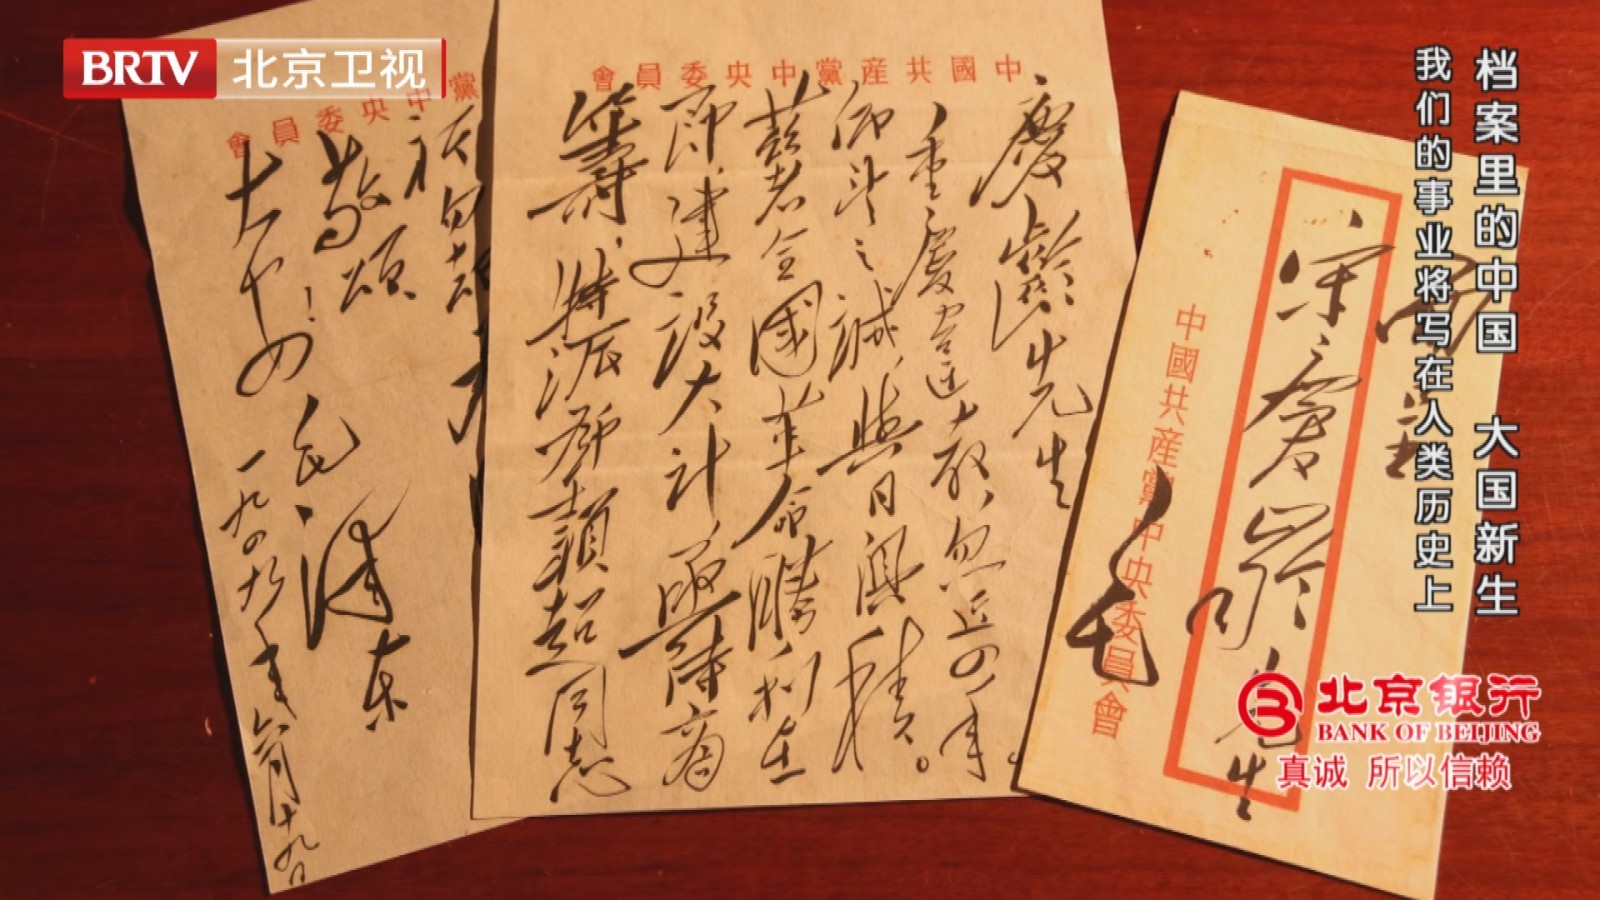 BRTV 北京卫视
档案里的中国 大国新生
我们的事业将写在人类历史上
面呈
宋慶齡先生
中國共産黨中央委員會
毛
中國共産黨中央委員會
慶齡先生
重慶違教，忽近四年。
仰望之誠，與日俱積。
兹者全國革命勝利在
即，建設大計，亟待商
籌，特派鄧穎超同志
黨中央委員會
祈勿却
敬頌
大安！
毛澤東
一九四九年六月十九日
北京银行
BANK OF BEIJING
真诚 所以信赖